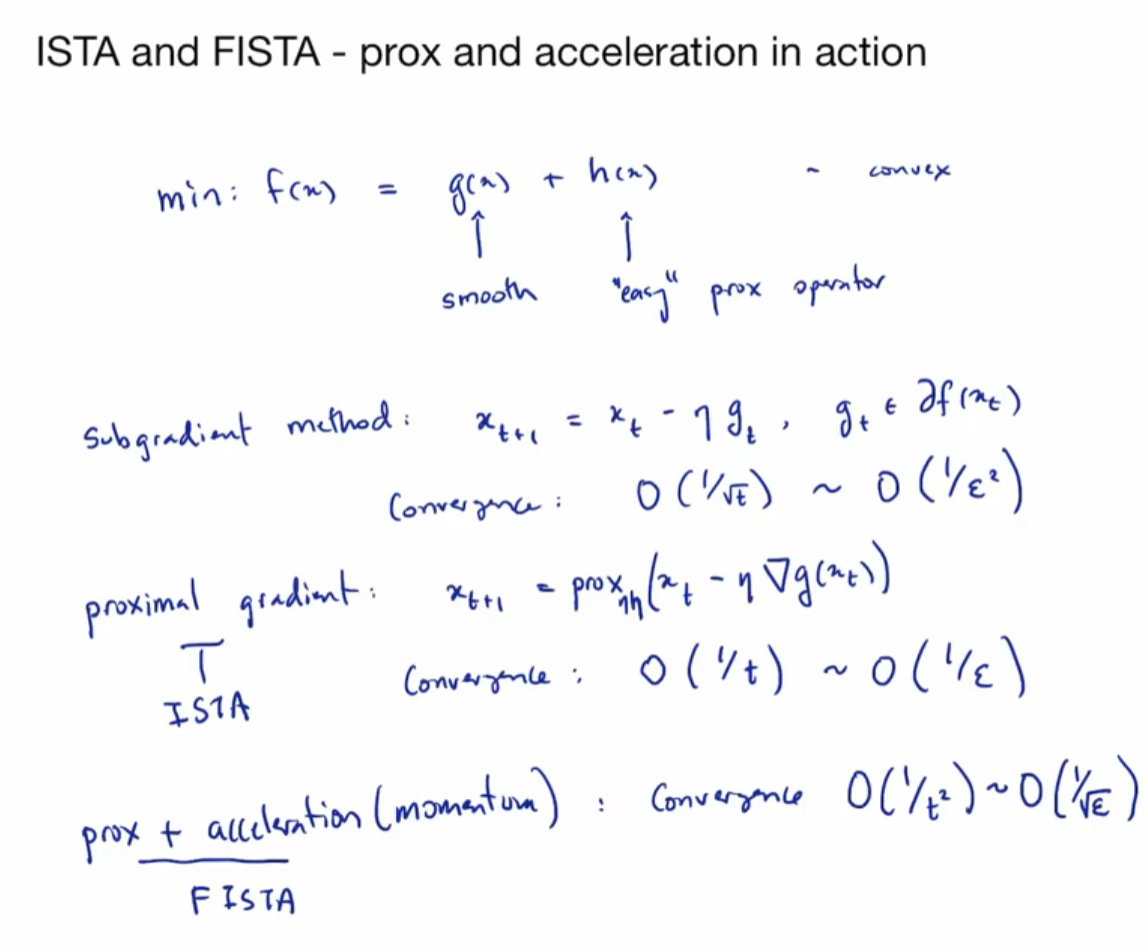 ISTA and FISTA - prox and acceleration in action
min: f(x) = g(x) + h(x) ~ convex
↑ ↑
smooth "easy" prox operator
Subgradient method: x_{t+1} = x_t - η g_t, g_t ∈ ∂f(x_t)
Convergence: O(1/√t) ~ O(1/ε²)
proximal gradient: x_{t+1} = prox_{ηh}(x_t - η ∇g(x_t))
ISTA Convergence: O(1/t) ~ O(1/ε)
prox + acceleration (momentum): Convergence O(1/t²) ~ O(1/√ε)
FISTA